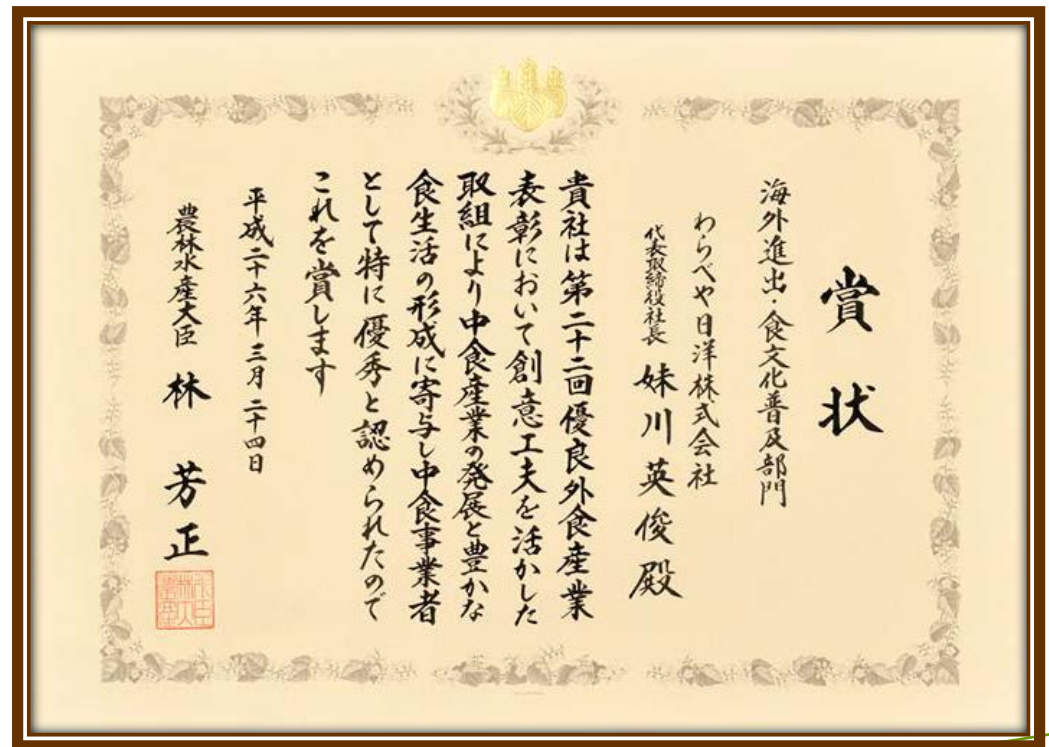 賞状
海外進出・食文化普及部門
わらべや日洋株式会社
代表取締役社長 妹川英俊殿
貴社は第二十二回優良外食産業
表彰において創意工夫を活かした
取組により中食産業の発展と豊かな
食生活の形成に寄与し中食事業者
として特に優秀と認められたので
これを賞します
平成二十六年三月二十四日
農林水産大臣 林 芳正